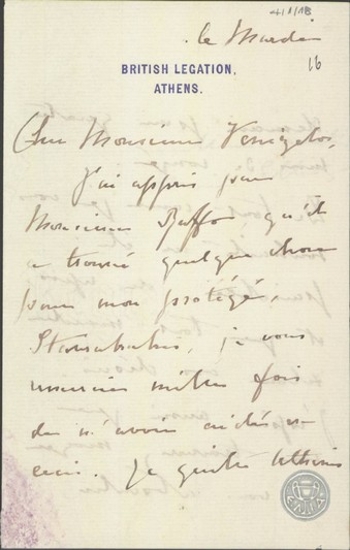 4/1/18
le Mardi
16
BRITISH LEGATION,
ATHENS.
Cher Monsieur Venizelos,
J'ai appris par
Monsieur qu'il
a trouvé quelque chose
pour mon protégé,
je vous
remercie milles fois
de m'avoir aidés en
ceci. Je quitte Athènes